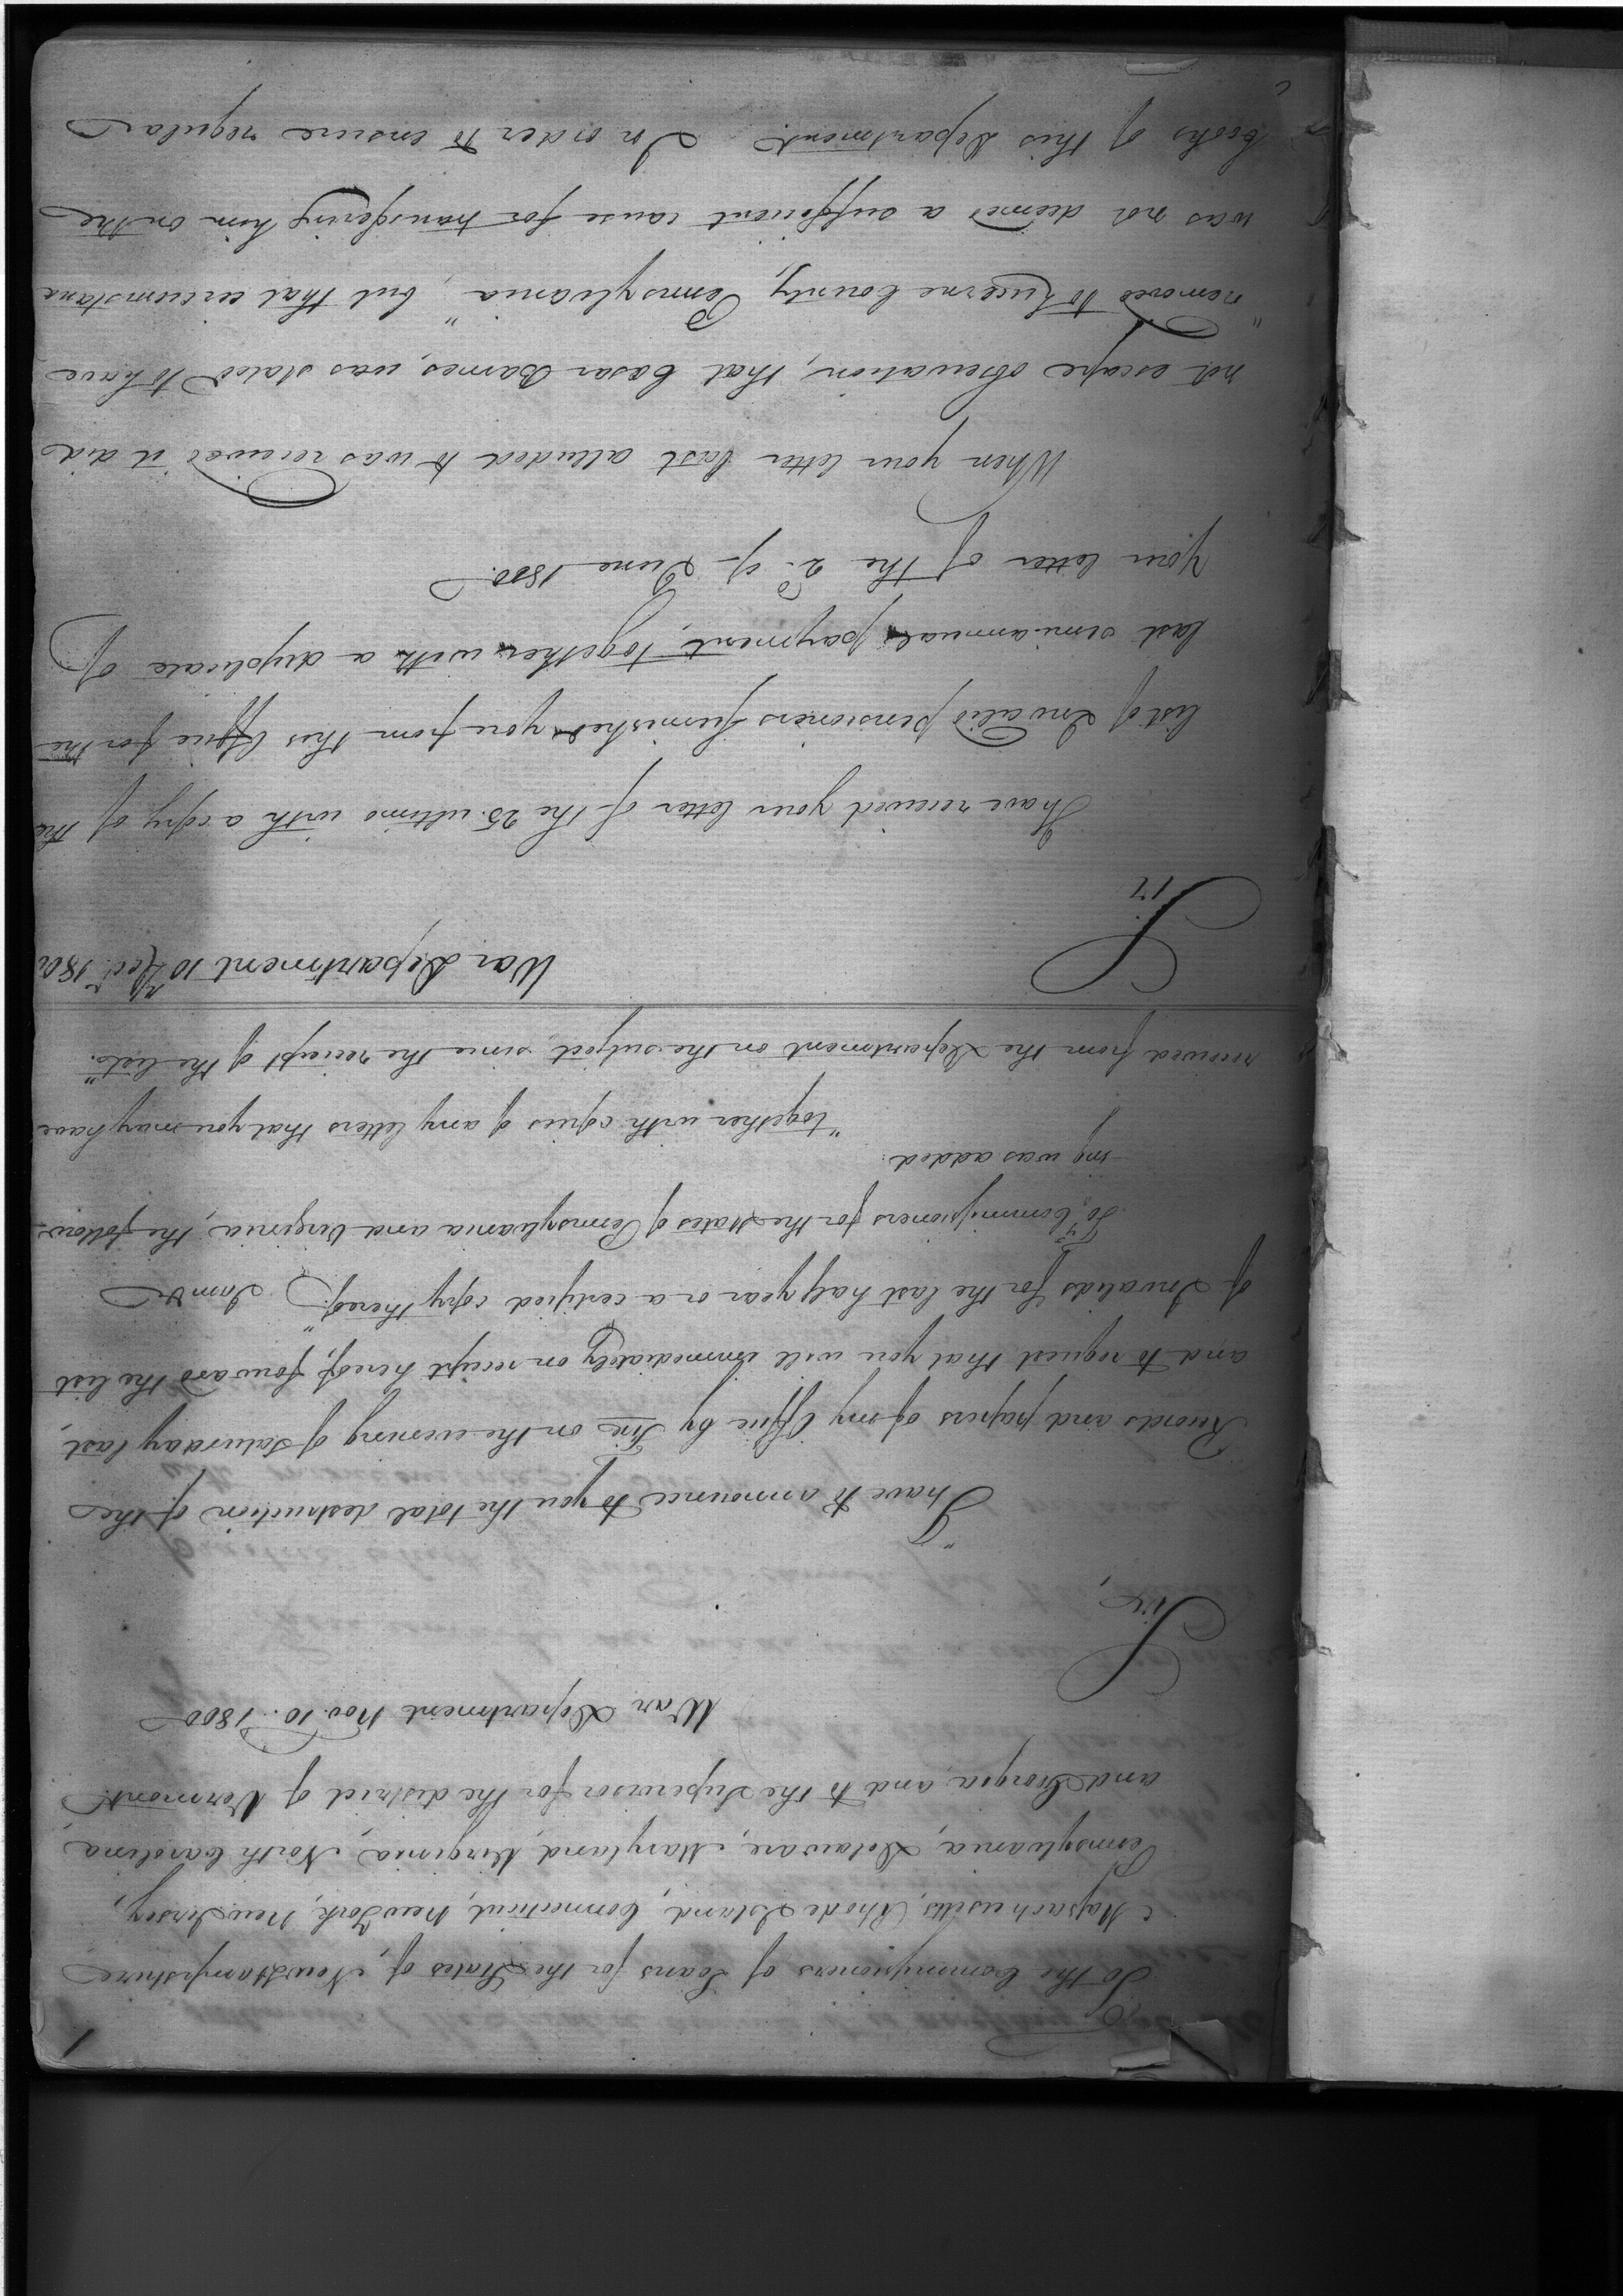 1
To the Commissioners of Loans for the States of New Hampshire
Massachusetts, Rhode Island, Connecticut, New York, New Jersey,
Pennsylvania, Delaware, Maryland, Virginia, North Carolina
and Georgia, and to the Supervisor for the district of Vermont.
War Department Nov. 10. 1800
Sir,
"I have to announce to you the total destruction of the
Records and papers of my Office by Fire on the evening of Saturday last,
and to request that you will immediately on receipt hereof, forward the list
of Invalids for the last half year or a certified copy thereof." I am &c
To Commissioners for the States of Pennsylvania and Virginia, the follow-
ing was added:
"together with copies of any letters that you may have
received from the Department on the subject, since the receipt of the lists."
War Department 10 Decr. 180
Sir
I have received your letter of the 25. ultimo with a copy of the
list of Invalid pensioners furnished you from this Office for the
last semi-annual payment, together with a duplicate of
your letter of the 2d. of June 1800.
When your letter last alluded to was received it did
not escape observation, that Casar Barnes, was stated to have
"removed to Luzerne County, Pennsylvania", but that circumstance
was not deemed a sufficient cause for transfering him on the
books of this Department. In order to ensure regular